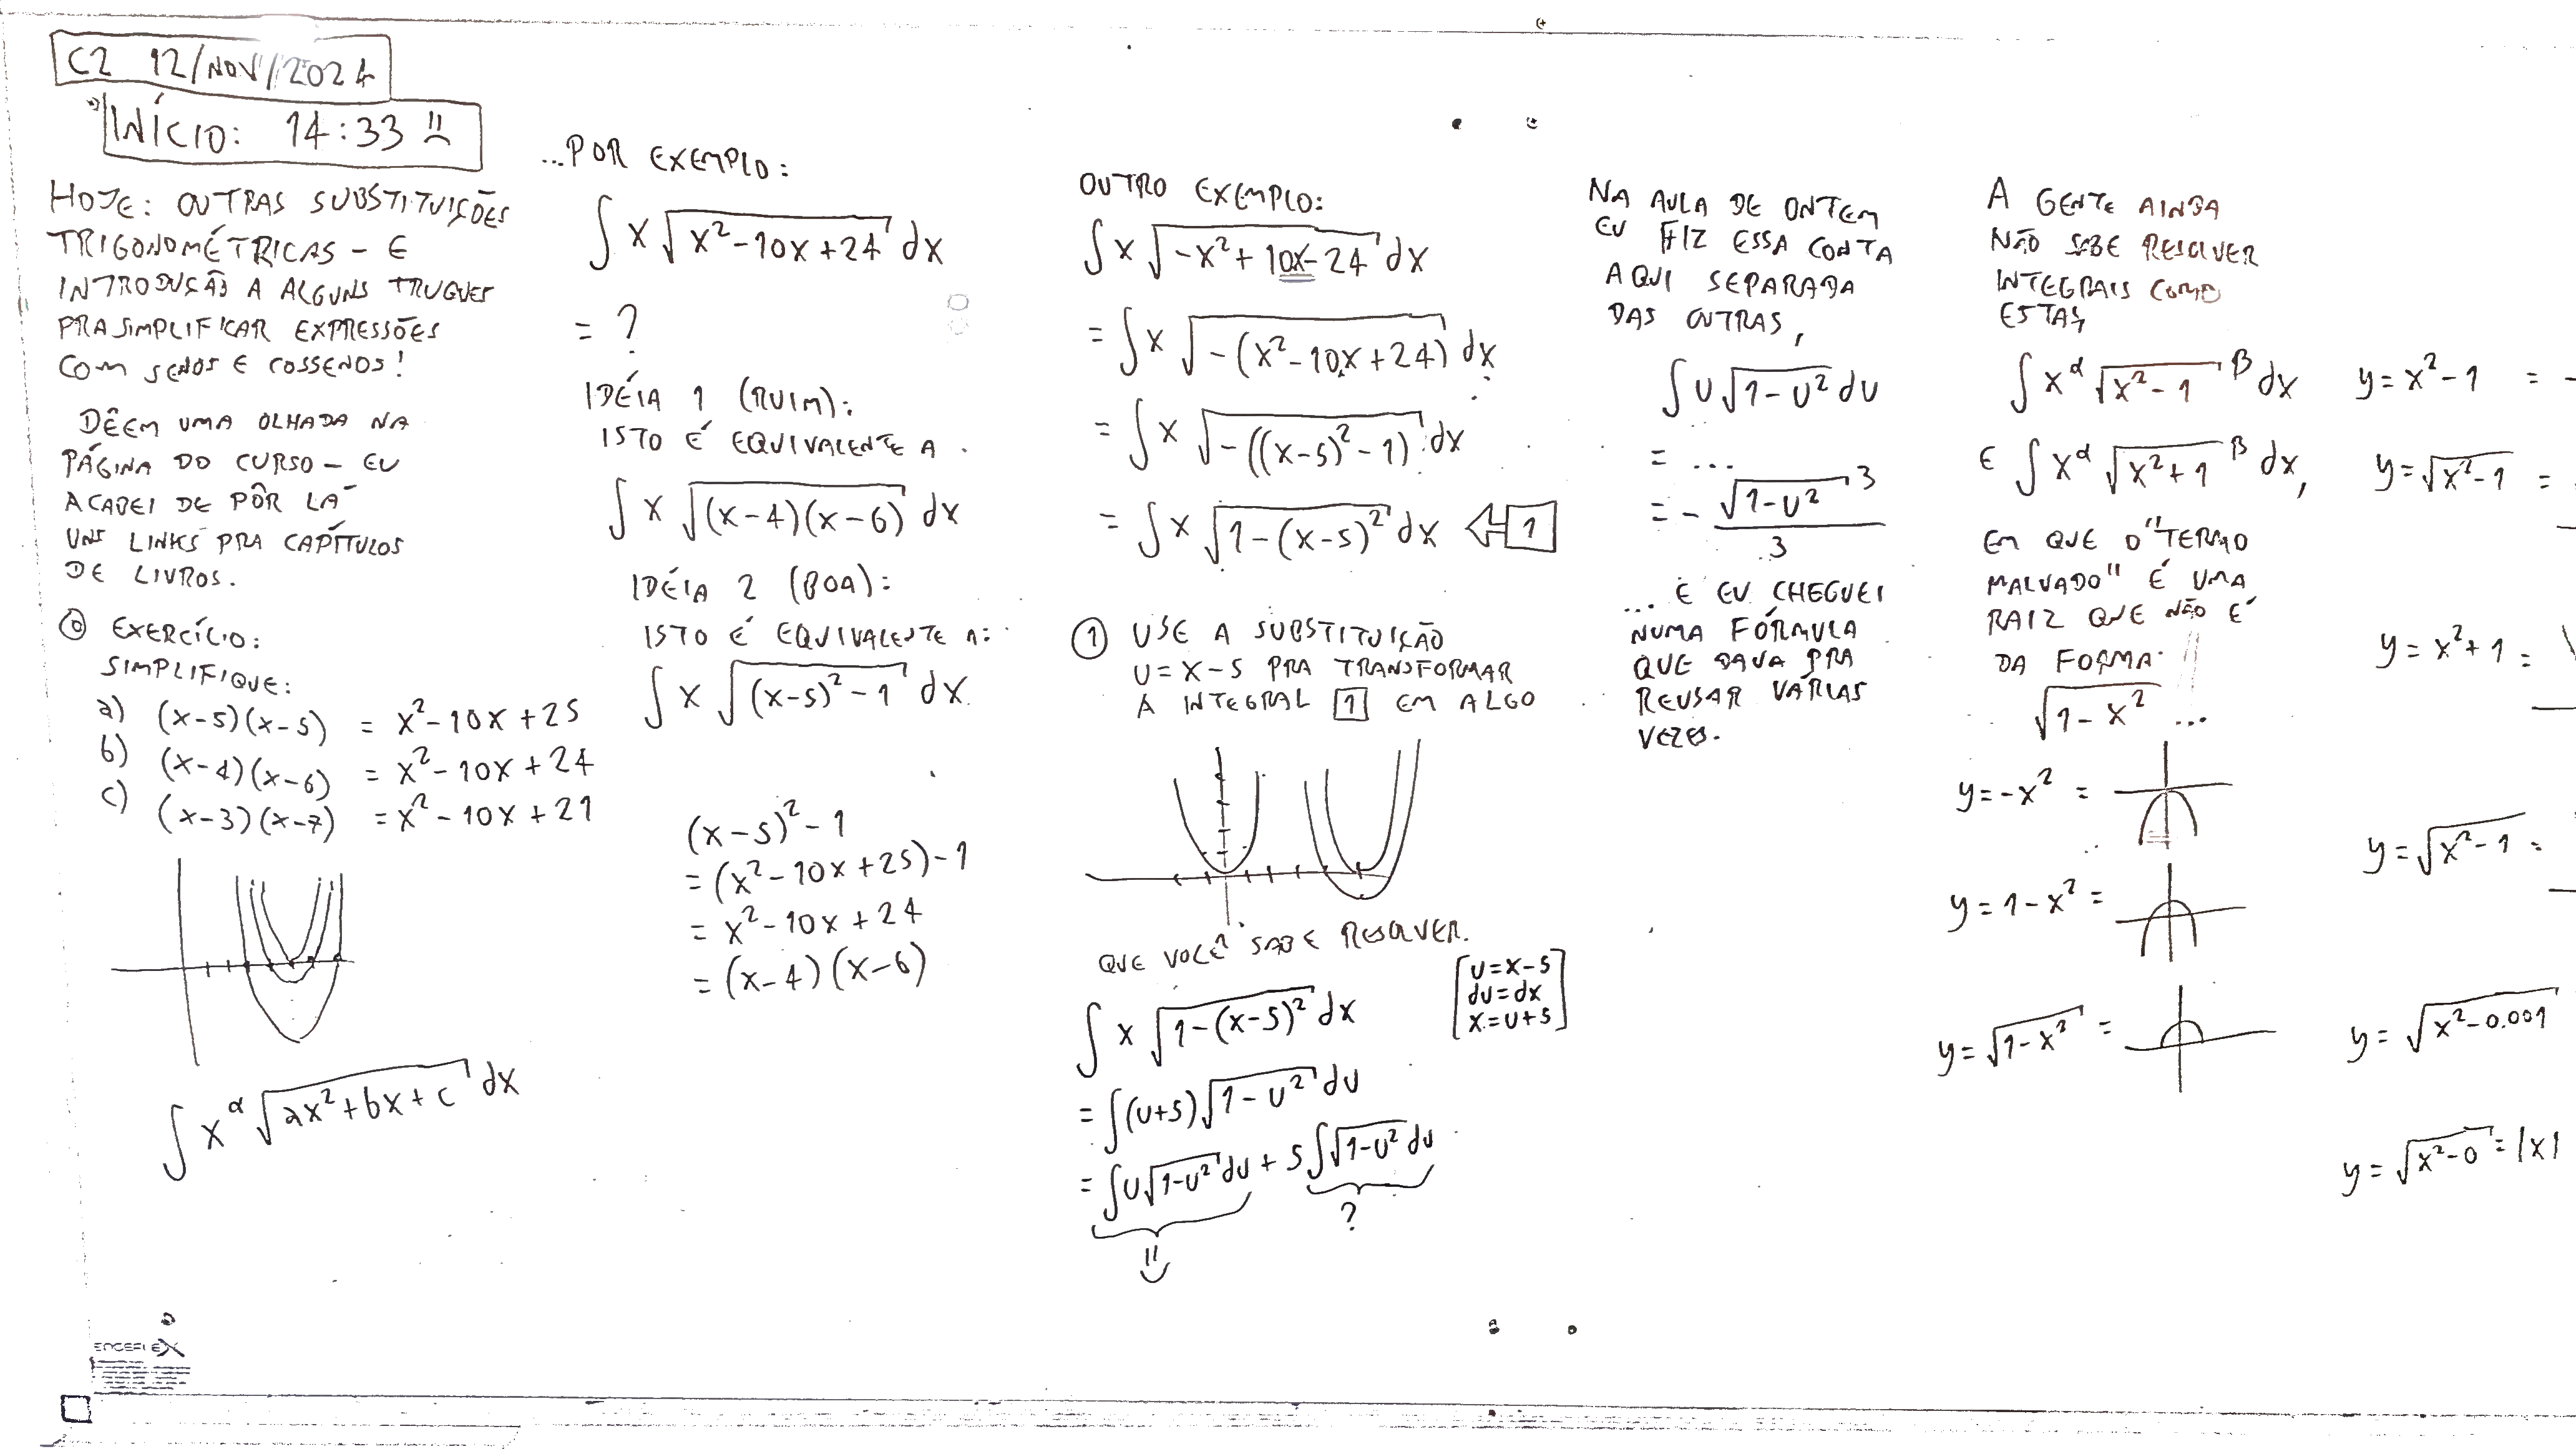 C2 12/NOV/2024
INÍCIO: 14:33
HOJE: OUTRAS SUBSTITUIÇÕES
TRIGONOMÉTRICAS - E
INTRODUÇÃO A ALGUNS TRUQUES
PRA SIMPLIFICAR EXPRESSÕES
COM SENOS E COSSENOS!
DÊEM UMA OLHADA NA
PÁGINA DO CURSO - EU
ACABEI DE PÔR LÁ
UNS LINKS PRA CAPÍTULOS
DE LIVROS.
⓪ EXERCÍCIO:
SIMPLIFIQUE:
a) (x-5)(x-5) = x²-10x+25
b) (x-4)(x-6) = x²-10x+24
c) (x-3)(x-7) = x²-10x+21
∫ x^α √(ax²+bx+c) dx
...POR EXEMPLO:
∫ x √(x²-10x+24) dx
= ?
IDÉIA 1 (RUIM):
ISTO É EQUIVALENTE A
∫ x √((x-4)(x-6)) dx
IDÉIA 2 (BOA):
ISTO É EQUIVALENTE A:
∫ x √((x-5)²-1) dx.
(x-5)²-1
= (x²-10x+25)-1
= x²-10x+24
= (x-4)(x-6)
OUTRO EXEMPLO:
∫ x √(-x²+10x-24) dx
= ∫ x √(-(x²-10x+24)) dx
= ∫ x √(-((x-5)²-1)) dx
= ∫ x √(1-(x-5)²) dx ⇐ 1
① USE A SUBSTITUIÇÃO
U=X-5 PRA TRANSFORMAR
A INTEGRAL 1 EM ALGO
QUE VOCÊ SABE RESOLVER.
∫ x √(1-(x-5)²) dx
[u=x-5
du=dx
x=u+5]
= ∫(u+5)√(1-u²) du
= ∫u√(1-u²) du + 5∫√(1-u²) du
?
NA AULA DE ONTEM
EU FIZ ESSA CONTA
AQUI SEPARADA
DAS OUTRAS,
∫u√(1-u²) du
= ...
= - √(1-u²)³ / 3
... E EU CHEGUEI
NUMA FÓRMULA
QUE DAVA PRA
REUSAR VÁRIAS
VEZES.
A GENTE AINDA
NÃO SABE RESOLVER
INTEGRAIS COMO
ESTAS,
∫ x^α √(x²-1)^β dx
E ∫ x^α √(x²+1)^β dx,
EM QUE O "TERMO
MALVADO" É UMA
RAIZ QUE NÃO É
DA FORMA
√(1-x²) ...
y=-x² =
y=1-x² =
y=√(1-x²) =
y=x²-1 =
y=√(x²-1) =
y=x²+1 =
y=√(x²-1) =
y=√(x²-0.001)
y=√(x²-0) = |x|